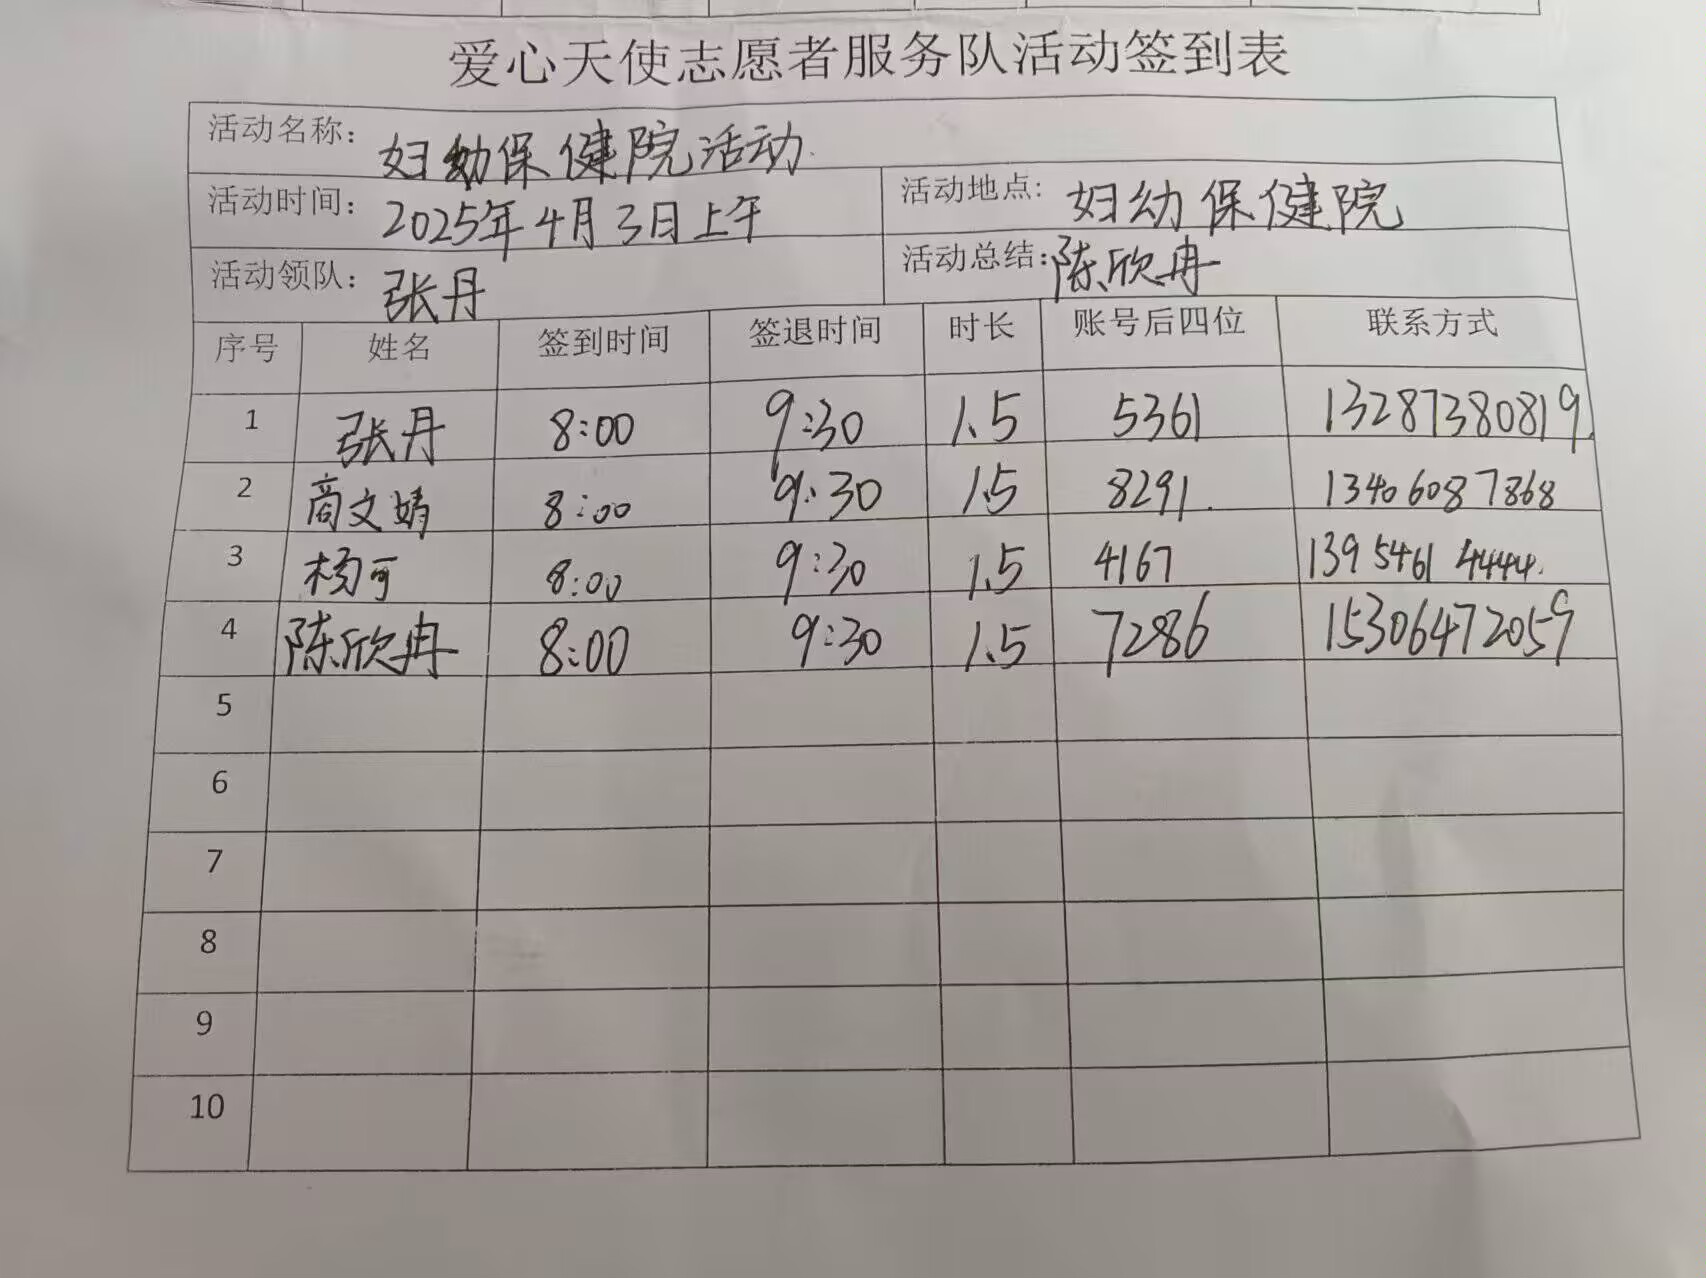 爱心天使志愿者服务队活动签到表
活动名称： 妇幼保健院活动
活动时间： 2025年4月3日上午 活动地点: 妇幼保健院
活动领队： 张丹 活动总结: 陈欣冉
序号 姓名 签到时间 签退时间 时长 账号后四位 联系方式
1 张丹 8:00 9:30 1.5 5361 13287380819
2 商文婧 8:00 9:30 1.5 8291 13406087868
3 杨可 8:00 9:30 1.5 4167 13954614444
4 陈欣冉 8:00 9:30 1.5 7286 15306472059
5
6
7
8
9
10